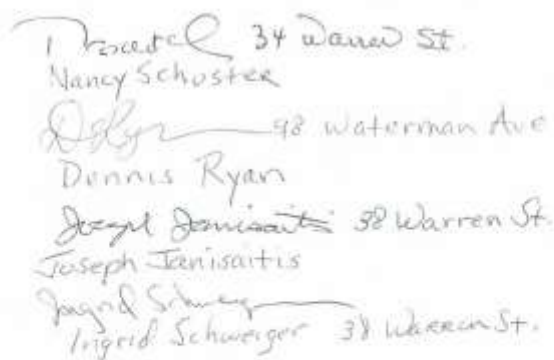 34 Warren St.
Nancy Schuster
98 Waterman Ave
Dennis Ryan
Joseph Janisaitis 38 Warren St.
Joseph Janisaitis
Ingrid
Ingrid Schweiger 38 Warren St.